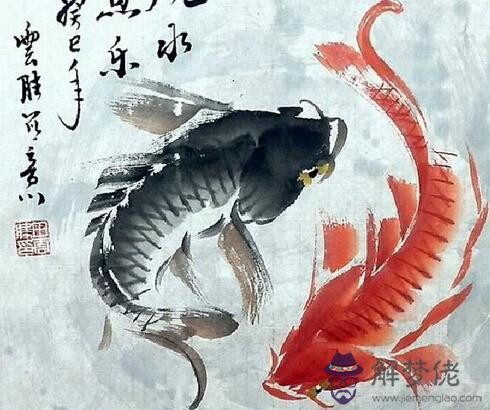 水
魚乐
癸巳年
雲胜写意
解梦佬
www.jiemenglao.com